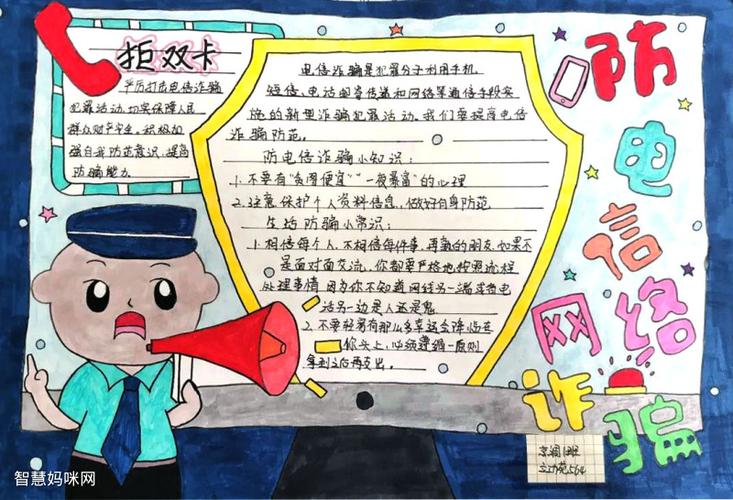 拒双卡
严厉打击电信诈骗
犯罪活动,切实保障人民
群众财产安全。积极加
强自我防范意识,提高
防骗能力.
电信诈骗是犯罪分子利用手机、
短信、电话
传送和网络等通信手段实
施的新型诈骗犯罪活动。我们要提高电信
诈骗防范。
防电信诈骗小知识:
1.不要有“贪图便宜”“一夜暴富”的心理
2.注意保护个人资料信息,做好自身防范
生活防骗小常识:
1.相信每个人,不相信每件事,再熟的朋友,如果不
是面对面交流,你都要严格地按照流程
处理事情,因为你不知道网线另一端或者电
话另一边是人还是鬼
2.不要轻易有那么多幸运会降临在
你头上,必须遵循一原则
拿到之后再支出。
防电信
网络
诈骗
智慧妈咪网